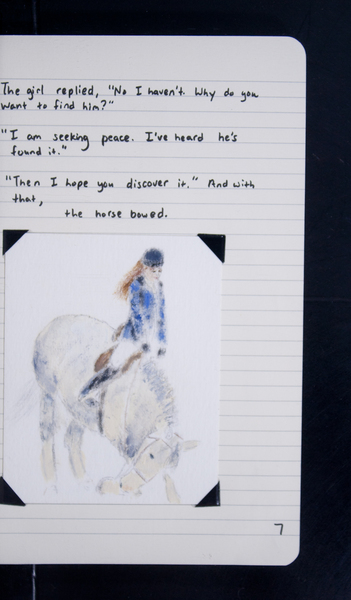 The girl replied, "No I haven't. Why do you
want to find him?"
"I am seeking peace. I've heard he's
found it."
"Then I hope you discover it." And with
that,
the horse bowed.
7